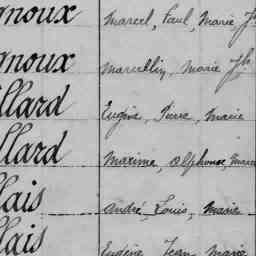 gnoux Marcel, Paul, Marie, Jh
gnoux Marcellin, Marie Jh
llard Eugène, Pierre, Marie
llard Maxime, Alphonse, Marie
lais André, Louis, Marie
lais Eugène Jean Marie